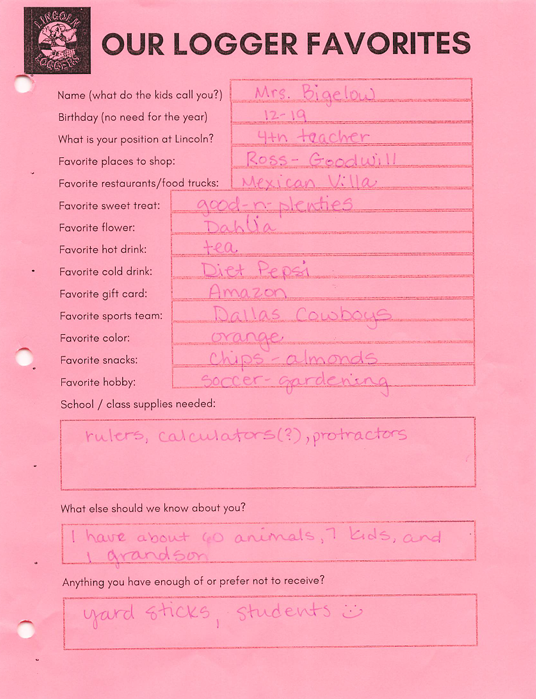 LINCOLN
LOGGERS
OUR LOGGER FAVORITES
Name (what do the kids call you?) Mrs. Bigelow
Birthday (no need for the year) 12-19
What is your position at Lincoln? 4th teacher
Favorite places to shop: Ross - Goodwill
Favorite restaurants/food trucks: Mexican Villa
Favorite sweet treat: good-n-plenties
Favorite flower: Dahlia
Favorite hot drink: tea
Favorite cold drink: Diet Pepsi
Favorite gift card: Amazon
Favorite sports team: Dallas Cowboys
Favorite color: orange
Favorite snacks: chips - almonds
Favorite hobby: soccer - gardening
School / class supplies needed:
rulers, calculators(?), protractors
What else should we know about you?
I have about 60 animals, 7 kids, and
1 grandson
Anything you have enough of or prefer not to receive?
yard sticks, students